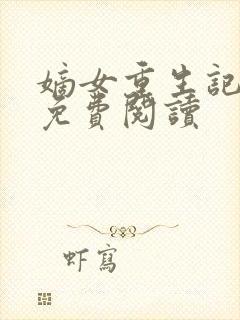 嫡女重生記
免費閱讀
虾寫